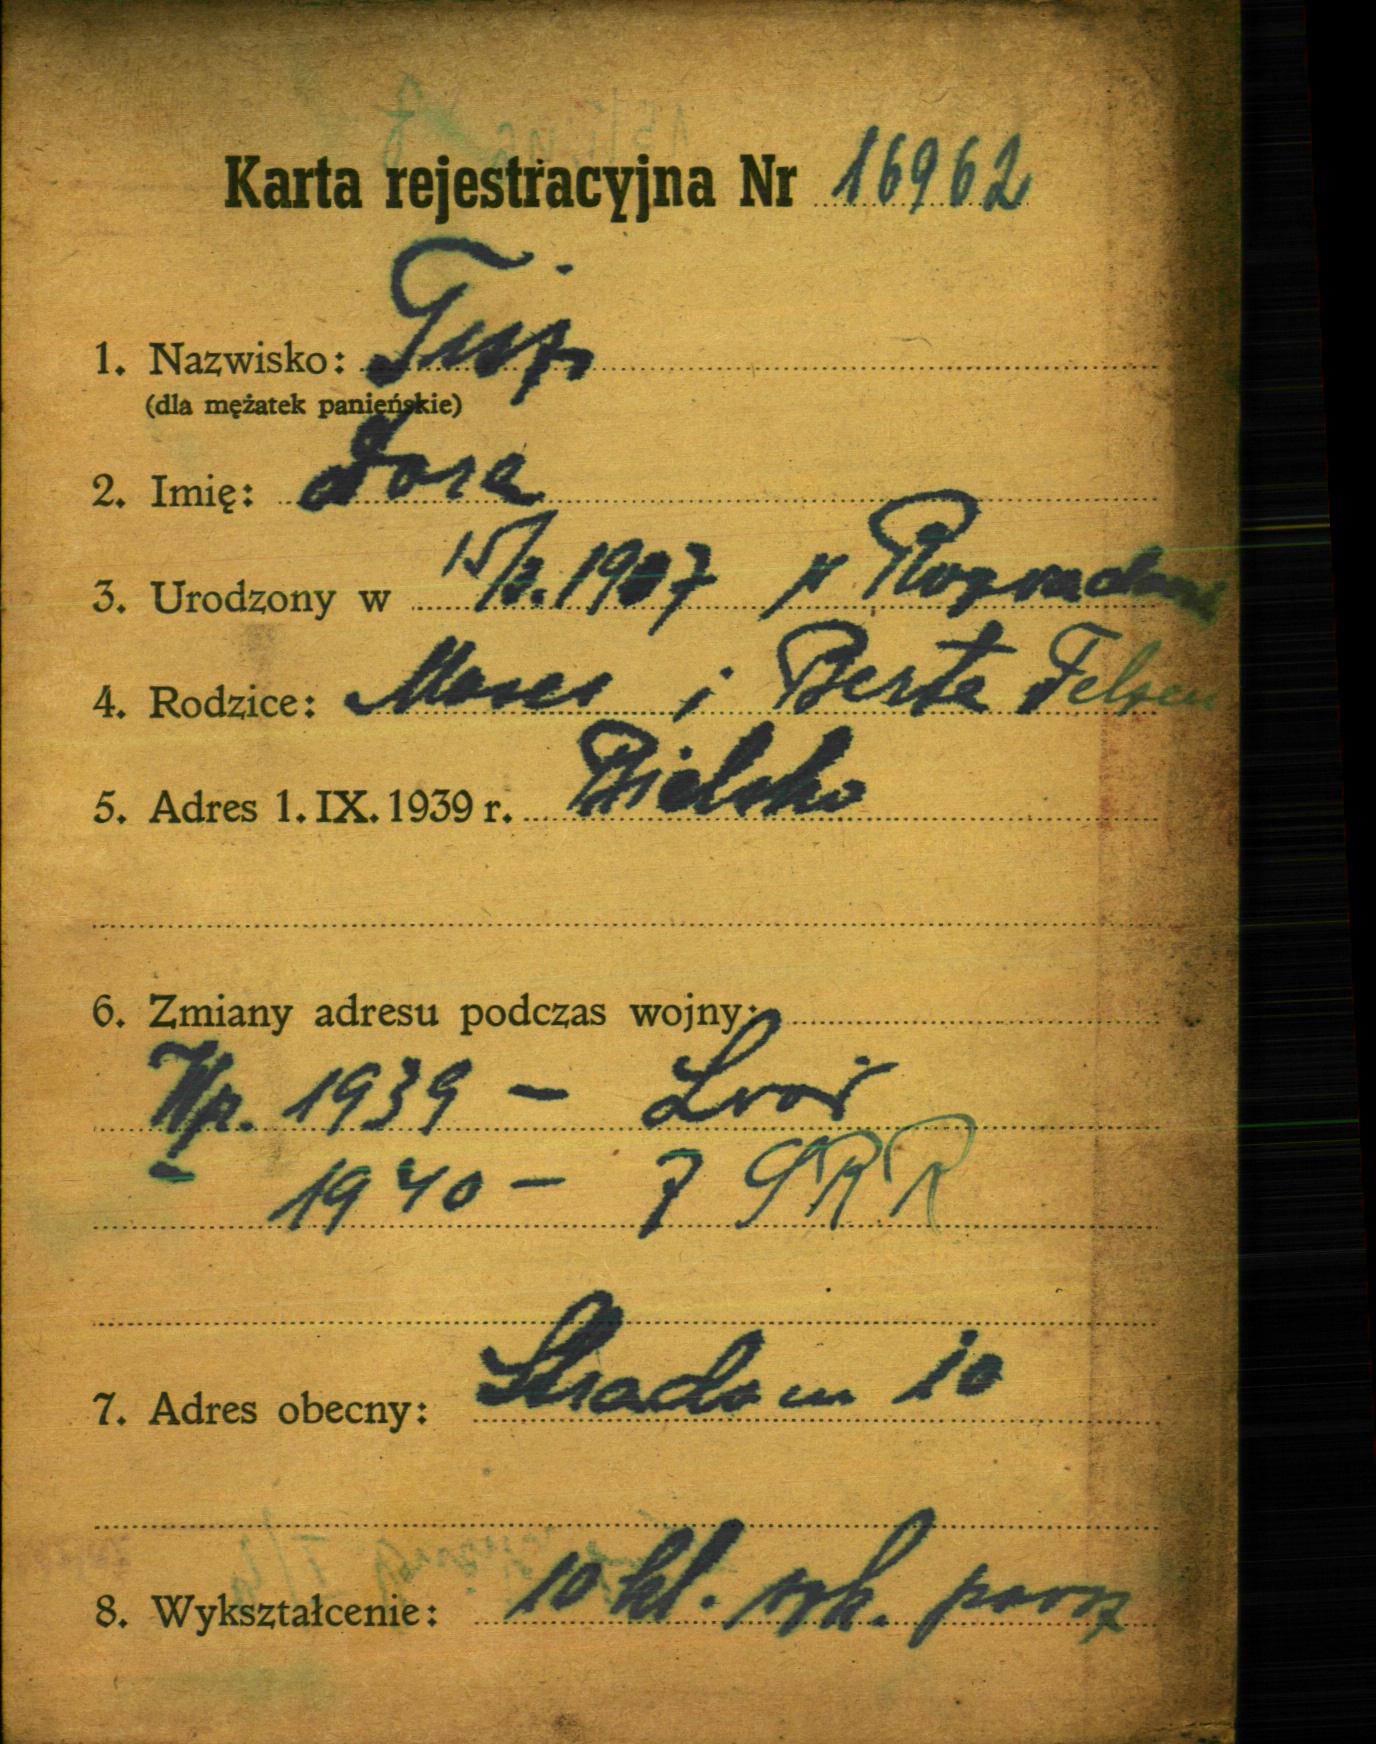 Karta rejestracyjna Nr 16962
1. Nazwisko:
(dla mężatek panieńskie)
2. Imię: Dora
3. Urodzony w 15/3.1907 w Rozwadowie
4. Rodzice: Moses i Berta Felsen
5. Adres 1. IX. 1939 r. Bielsko
6. Zmiany adresu podczas wojny:
1939 – Lwów
1940 – Z SRR
7. Adres obecny: Stradom 10
8. Wykształcenie: 10 kl. szk. powsz